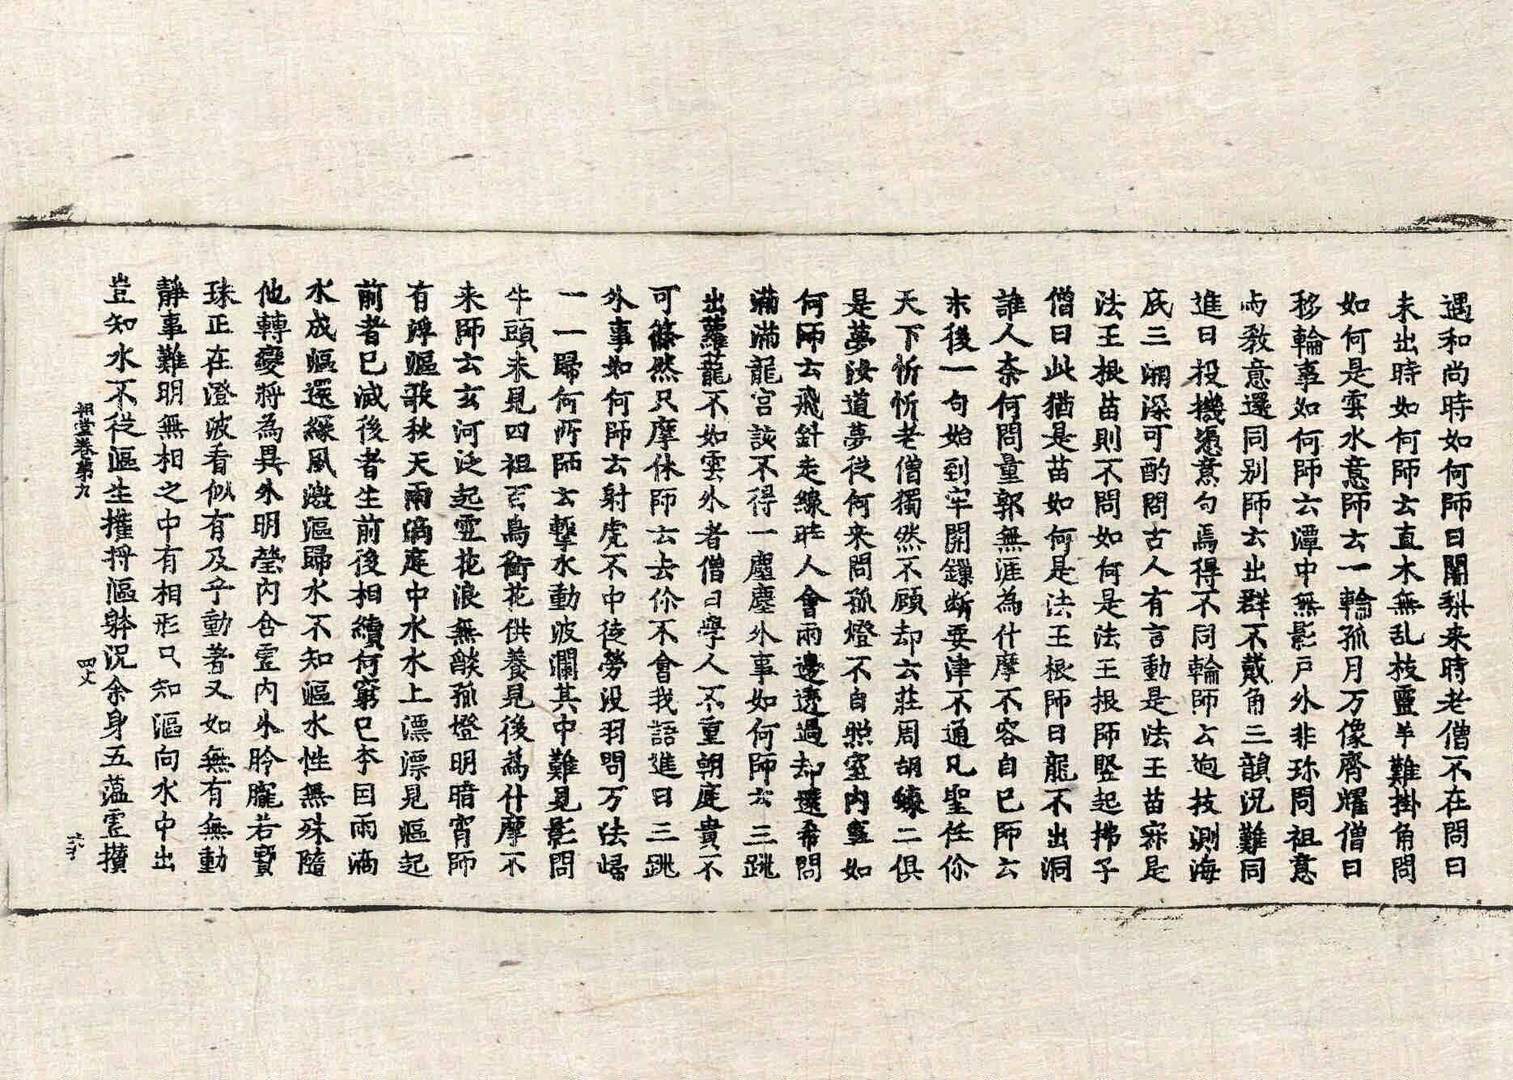 遇和尚時如何師曰闍梨来時老僧不在問曰
未出時如何師云直木無乱枝靈羊難掛角問
如何是雲水意師云一輪孤月万像齊耀僧曰
移輪事如何師云潭中無影戶外非珎問祖意
与教意還同別師云出群不戴角三韻況難同
進曰投機憑意句焉得不同輪師云迴技測海
底三湘深可酌問古人有言動是法王苗寂是
法王根苗則不問如何是法王根師竪起拂子
僧曰此猶是苗如何是法王根師曰龍不出洞
誰人奈何問量郭無涯為什摩不容自己師云
末後一句始到牢開鏁断要津不通凡聖任你
天下忻忻老僧獨然不顧却云莊周胡蝶二俱
是夢汝道夢從何来問孤燈不自照室内事如
何師云飛針走線時人會兩邊透過却還希問
滿滿龍宮該不得一塵塵外事如何師云三跳
出蘿蘢不如雲外者僧曰學人不重朝庭貴不
可條然只摩休師云去你不會我語進曰三跳
外事如何師云射虎不中徒勞没羽問万法歸
一一歸何所師云擊水動波瀾其中難見影問
牛頭未見四祖百鳥銜花供養見後為什摩不
来師云玄河泛起雲花浪無㷔孤燈明暗宵師
有浮漚歌秋天雨滴庭中水水上漂漂見漚起
前者已滅後者生前後相續何窮已本因雨滴
水成漚還緣風激漚歸水不知漚水性無殊隨
他轉變將為異外明瑩内含霊内外朎朧若寶
珠正在澄波看似有及乎動著又如無有無動
靜事難明無相之中有相形只知漚向水中出
豈知水不從漚生擁捋漚躰況余身五蕰霊攅
祖堂卷第九 四丈